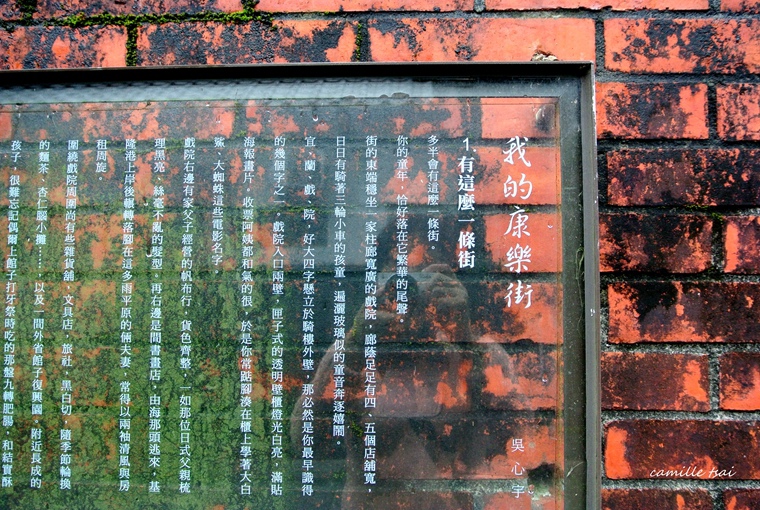 我的康樂街
吳心宇
1.有這麼一條街
多半會有這麼一條街
你的童年，恰好落在它繁華的尾聲。
街的東端穩坐一家柱廊寬廣的戲院，廊蔭足足有四、五個店舖寬，
日日有騎著三輪小車的孩童，遍灑玻璃似的童音奔逐嬉鬧。
宜、蘭、戲、院，好大四字懸立於騎樓外壁，那必然是你最早識得
的幾個字之一。戲院入口兩壁，匣子式的透明壁櫃燈光白亮，滿貼
海報畫片。收票阿姨都和氣的很，於是你常踮腳湊在櫃上學著大白
鯊、大蜘蛛這些電影名字。
戲院右邊有家父子經營的帆布行，貨色齊整，一如那位日式父親梳
理黑亮、絲毫不亂的髮型。再右邊是間書畫店，由海那頭逃來、基
隆港上岸後輾轉落腳在這多雨平原的倆夫妻，當得以兩袖清風與房
租周旋。
圍繞戲院周圍尚有些雜貨舖，文具店、旅社、黑白切，隨季節輪換
的麵茶、杏仁腦小攤……以及一間外省館子復興園。附近長成的
孩子，很難忘記偶爾上館子打牙祭時吃的那盤九轉肥腸，和結實酥
camille tsai